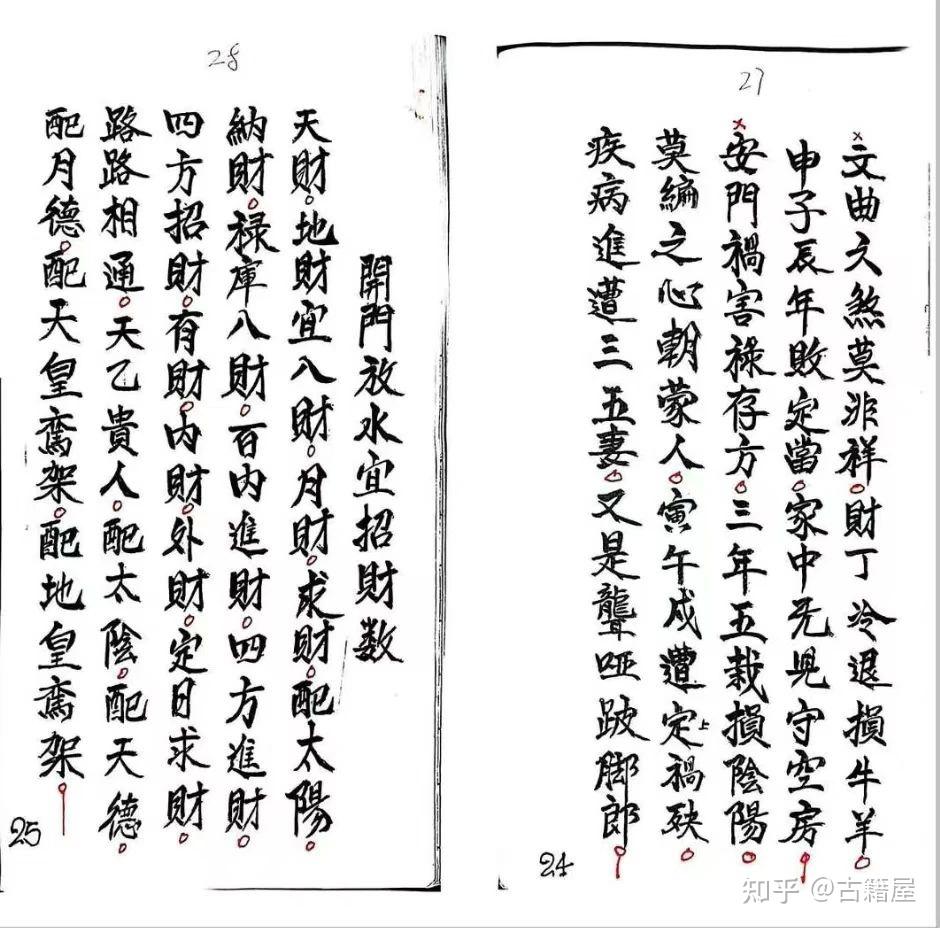 27
文曲文煞莫非祥。財丁冷退損牛羊。
申子辰年敗定當。家中无児守空房。
安門禍害禄存方。三年五栽損陰陽。
莫編之心朝蒙人。寅午戍遭定上禍殃。
疾病進遭三五妻。又是聾哑跛脚郎。
24
28
開門放水宜招財数
天財。地財宜八財。月財。求財。配太陽。
納財。禄庫八財。百内進財。四方進財。
四方招財。有財。内財。外財。定日求財。
路路相通。天乙貴人。配太陰。配天德。
配月德。配天皇鸾架。配地皇鸾架。
25
知乎 @古籍屋